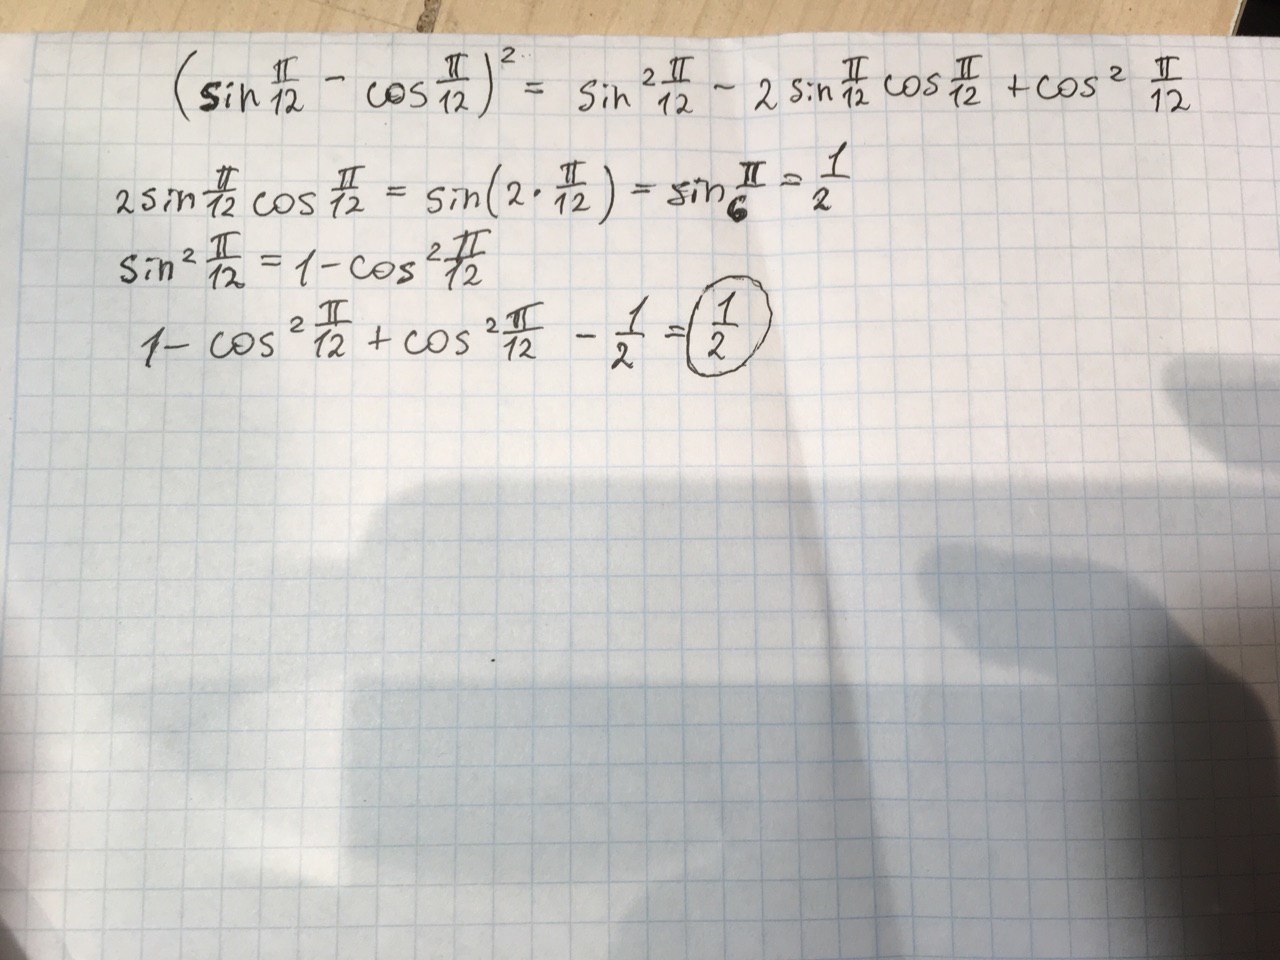 (sin π/12 − cos π/12)² = sin² π/12 − 2 sin π/12 cos π/12 + cos² π/12
2 sin π/12 cos π/12 = sin(2 · π/12) = sin π/6 = 1/2
sin² π/12 = 1 − cos² π/12
1 − cos² π/12 + cos² π/12 − 1/2 = 1/2